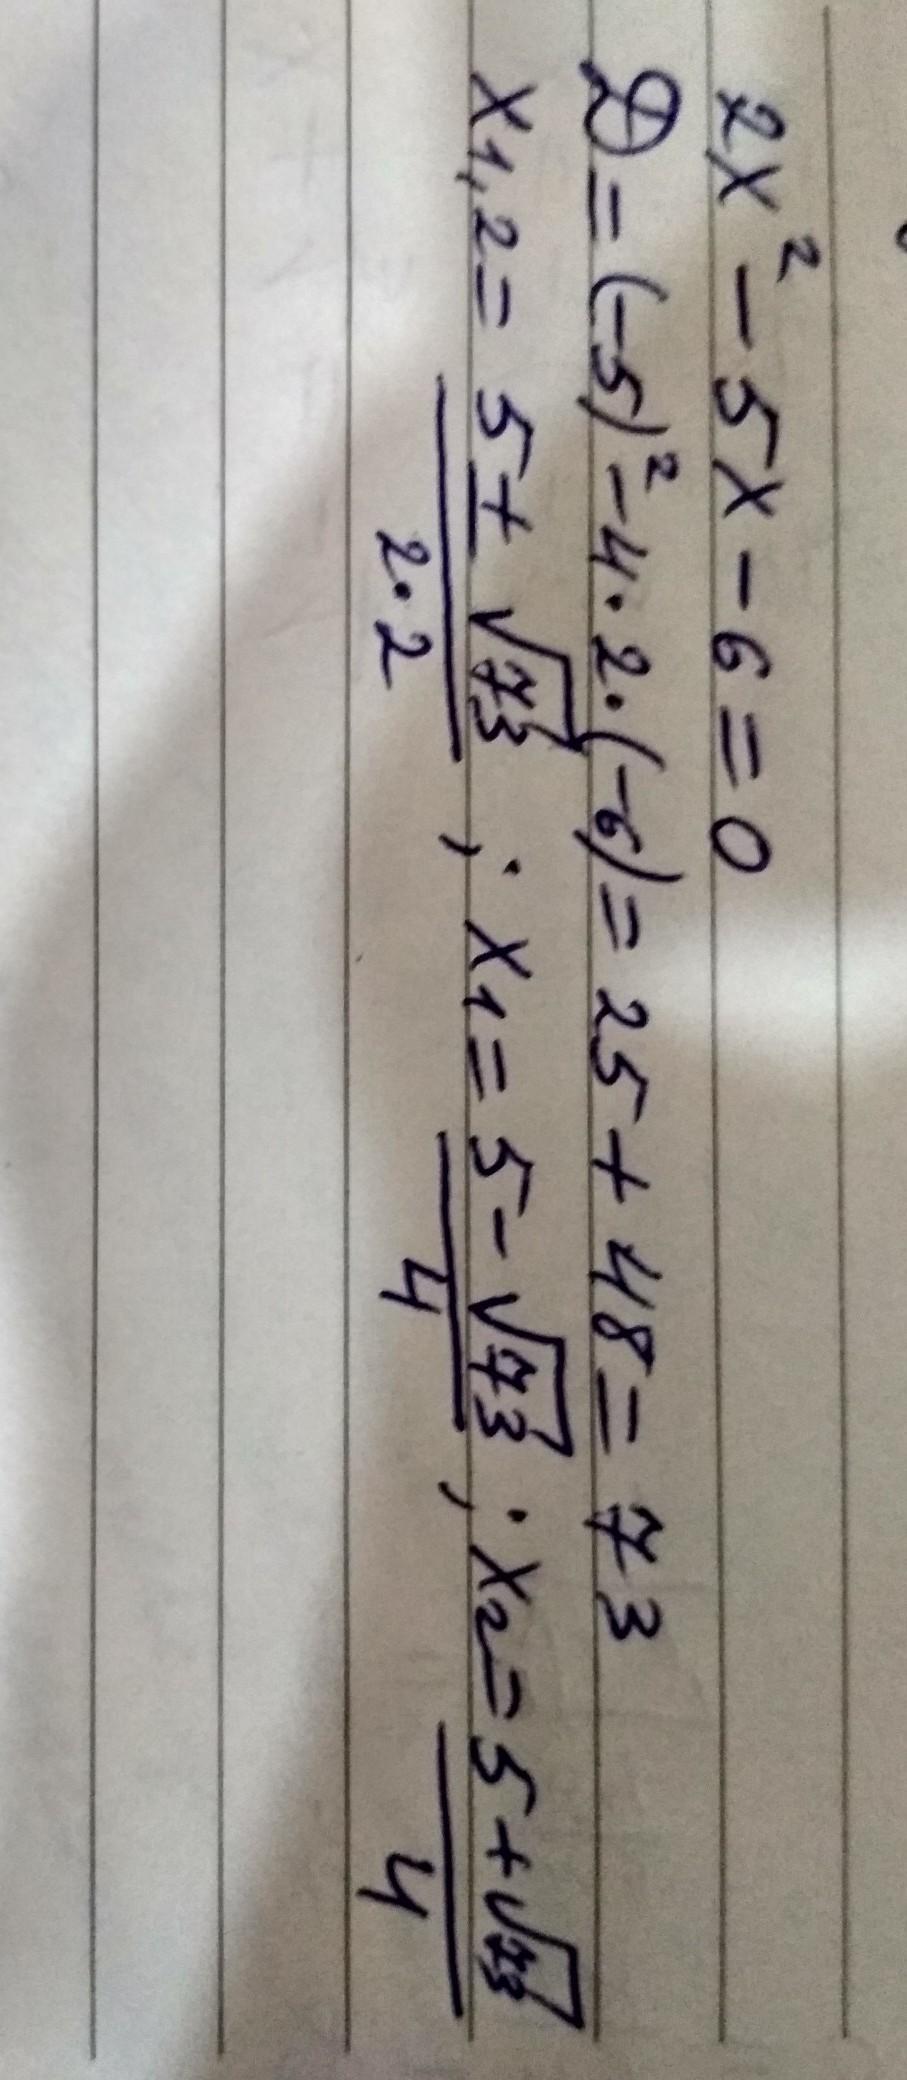 2x² - 5x - 6 = 0
D = (-5)² - 4 · 2 · (-6) = 25 + 48 = 73
x₁,₂ = (5 ± √73)/(2 · 2) ; x₁ = (5 - √73)/4 ; x₂ = (5 + √73)/4